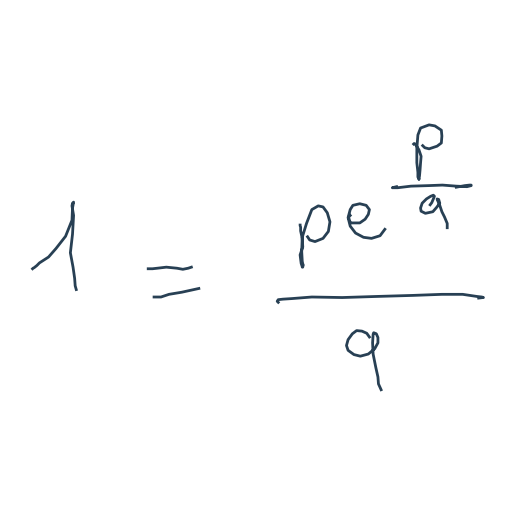 1 = \frac{pe^{\frac{p}{q}}}{q}